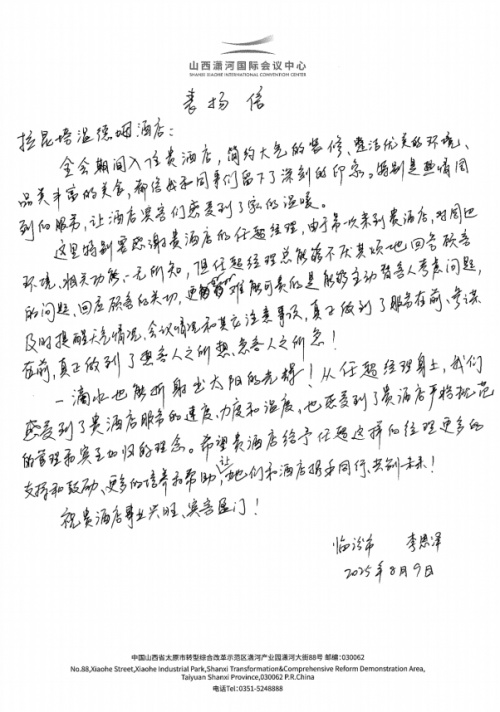 山西潇河国际会议中心
SHANXI XIAOHE INTERNATIONAL CONVENTION CENTER
表扬信
拉昆塔温德姆酒店：
全会期间入住贵酒店，简约大气的装修、整洁优美的环境、
品类丰富的美食，都给我和同事们留下了深刻的印象。特别是热情周
到的服务，让酒店宾客们感受到了家的温暖。
这里特别要感谢贵酒店的任超经理，由于第一次来到贵酒店，对周边
环境、相关功能一无所知，但任超经理总能够不厌其烦地回答顾客
的问题，回应顾客的关切，更难能可贵的是能够主动替客人考虑问题，
及时提醒天气情况、会议情况和其它注意事项，真正做到了服务在前、参谋
在前，真正做到了想客人之所想、急客人之所急！
一滴水也能折射出太阳的光辉！从任超经理身上，我们
感受到了贵酒店服务的速度、力度和温度，也感受到了贵酒店严格规范
的管理和宾至如归的理念。希望贵酒店给予任超这样的经理更多的
支持和鼓励、更多的培养和帮助，让他们和酒店携手同行、共创未来！
祝贵酒店事业兴旺、宾客盈门！
临汾市 李思泽
2025年8月9日
中国山西省太原市转型综合改革示范区潇河产业园潇河大街88号 邮编：030062
No.88,Xiaohe Street,Xiaohe Industrial Park,Shanxi Transformation&Comprehensive Reform Demonstration Area,
Taiyuan Shanxi Province,030062 P.R.China
电话Tel:0351-5248888